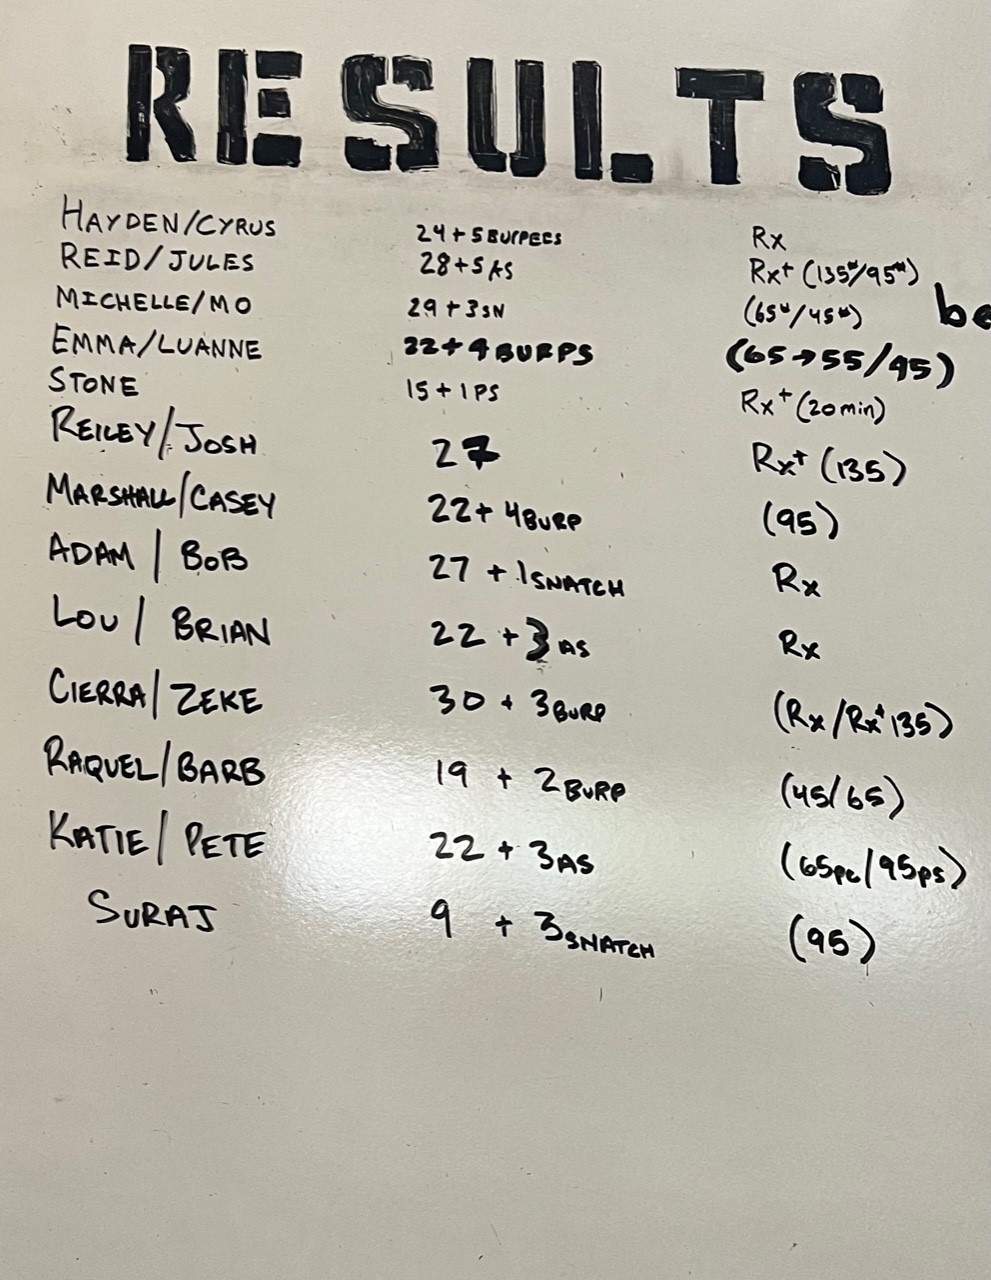 RESULTS
HAYDEN/CYRUS 24+5 BURPEES Rx
REID/JULES 28+5 AS Rx+ (135#/95#)
MICHELLE/MO 29+3 SN (65#/45#)
be
EMMA/LUANNE 22+4 BURPS (65→55/95)
STONE 15+1 PS Rx+ (20 min)
REILEY/JOSH 27 Rx+ (135)
MARSHALL/CASEY 22+ 4 BURP (95)
ADAM / BOB 27 + 1 SNATCH Rx
LOU / BRIAN 22 + 3 AS Rx
CIERRA/ ZEKE 30 + 3 BURP (Rx/Rx+ 135)
RAQUEL/BARB 19 + 2 BURP (45/65)
KATIE/ PETE 22 + 3 AS (65pc/95ps)
SURAJ 9 + 3 SNATCH (95)